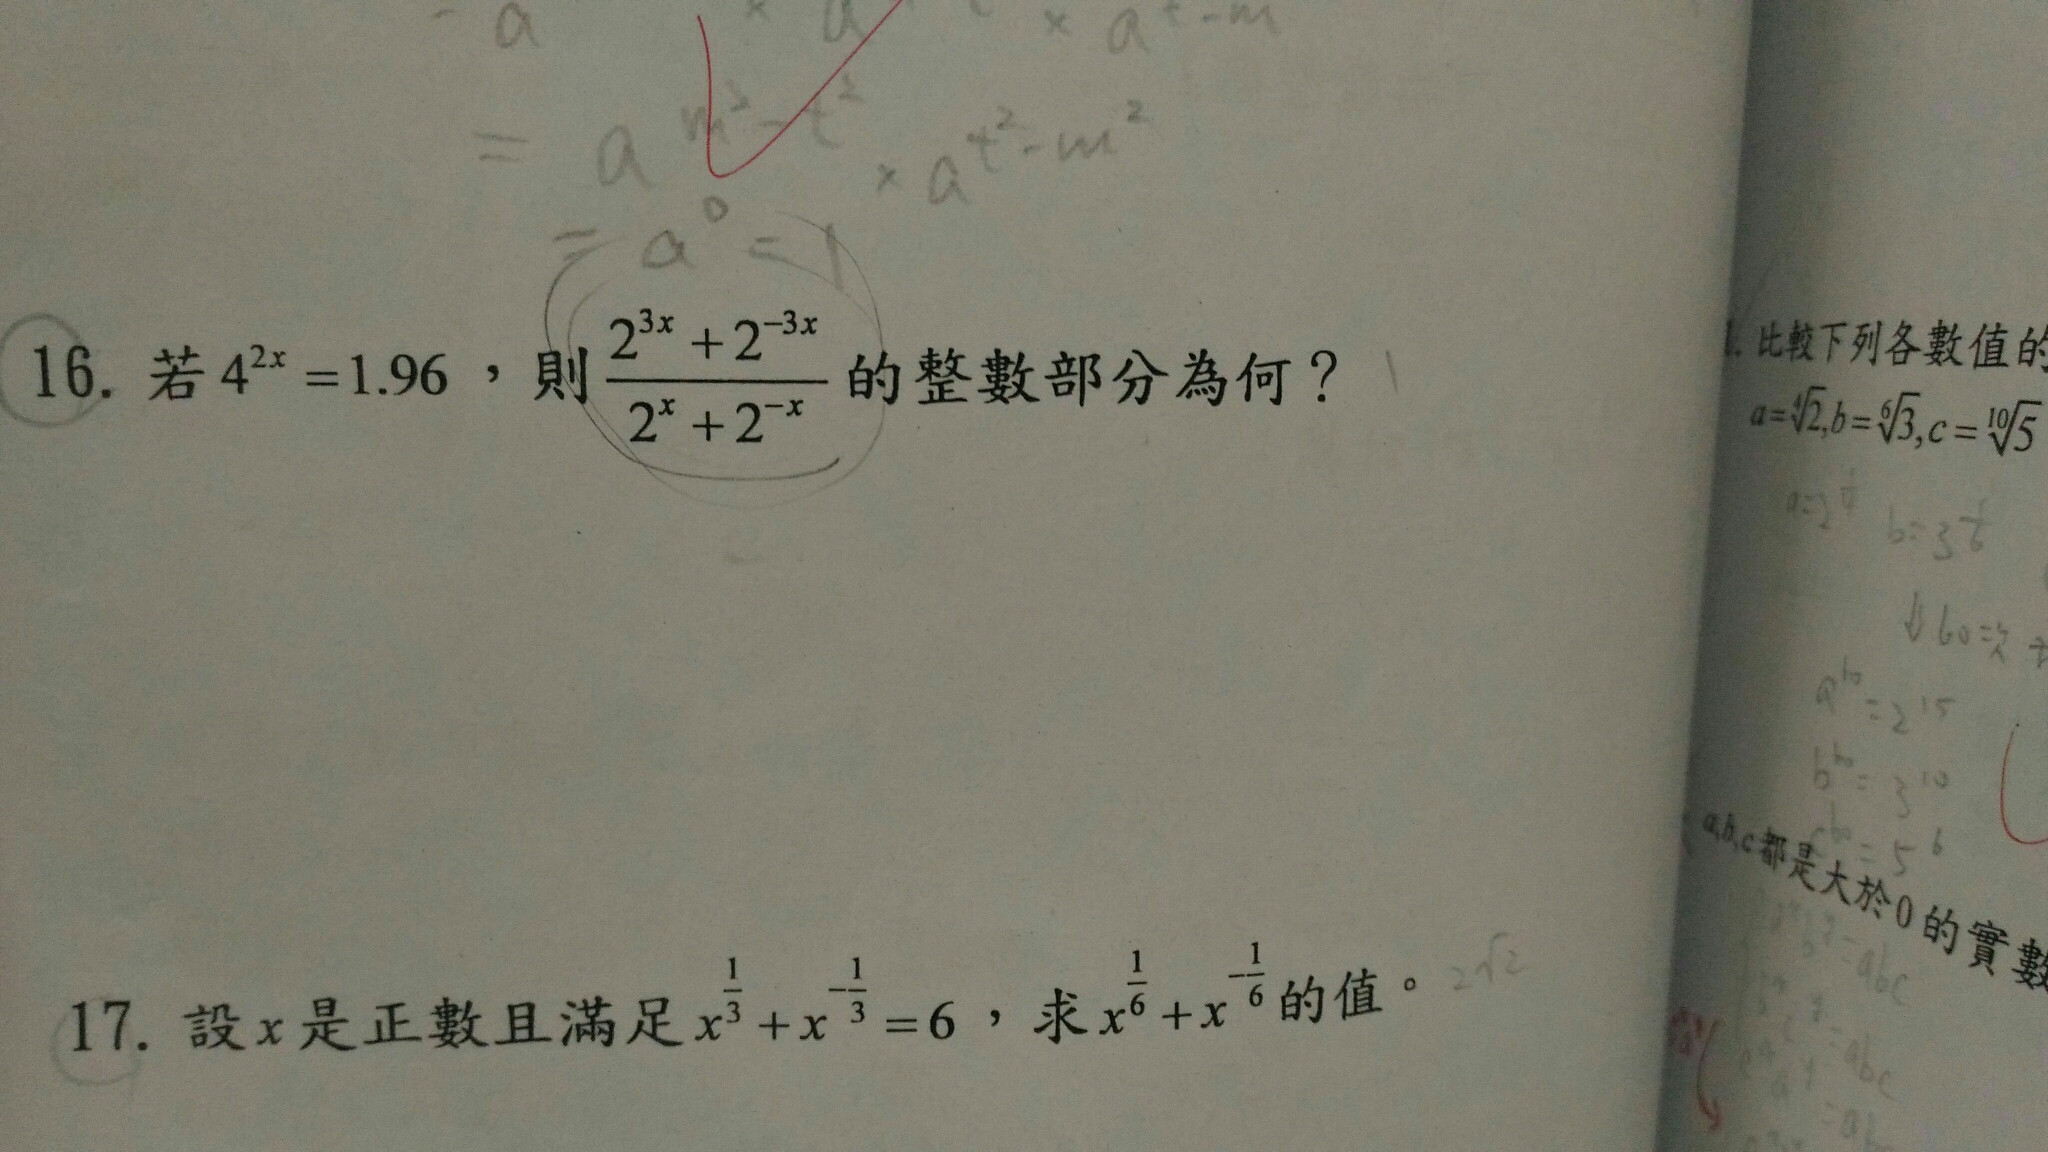 = a^{m²-t²} × a^{t²-m²}
= a⁰ = 1
16. 若 4^{2x} = 1.96，則 \frac{2^{3x} + 2^{-3x}}{2^x + 2^{-x}} 的整數部分為何？ 1
17. 設 x 是正數且滿足 x^{\frac{1}{3}} + x^{-\frac{1}{3}} = 6，求 x^{\frac{1}{6}} + x^{-\frac{1}{6}} 的值。 2√2
1. 比較下列各數值的
a=\sqrt[4]{2}, b=\sqrt[6]{3}, c=\sqrt[10]{5}
b=3^{\frac{1}{6}}
= 2^{15}
= 3^{10}
= 5^6
a,b,c都是大於0的實數
=abc
=abc